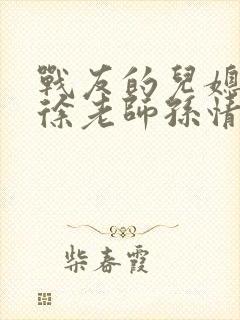 戰友的兒媳
徐老師孫情
柴春霞